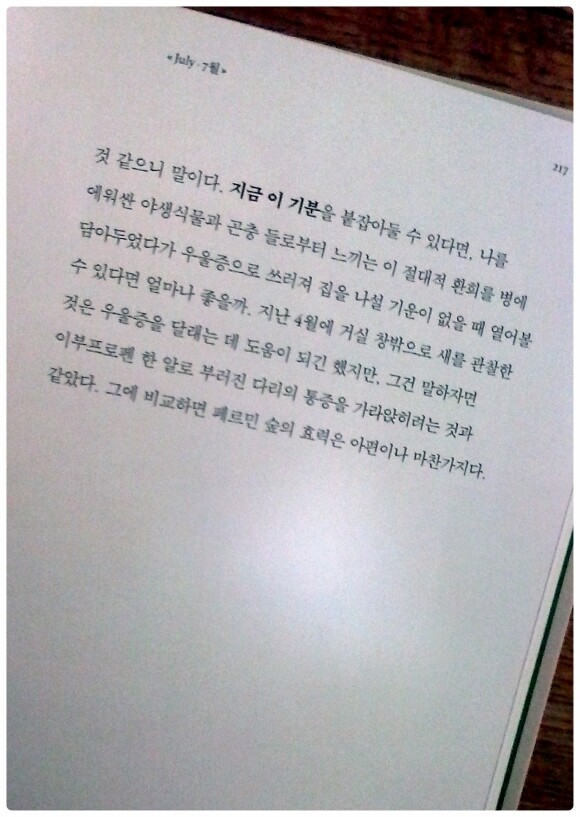 «July · 7월»
217
것 같으니 말이다. 지금 이 기분을 붙잡아둘 수 있다면, 나를
에워싼 야생식물과 곤충 들로부터 느끼는 이 절대적 환희를 병에
담아두었다가 우울증으로 쓰러져 집을 나설 기운이 없을 때 열어볼
수 있다면 얼마나 좋을까. 지난 4월에 거실 창밖으로 새를 관찰한
것은 우울증을 달래는 데 도움이 되긴 했지만, 그건 말하자면
이부프로펜 한 알로 부러진 다리의 통증을 가라앉히려는 것과
같았다. 그에 비교하면 페르민 숲의 효력은 아편이나 마찬가지다.